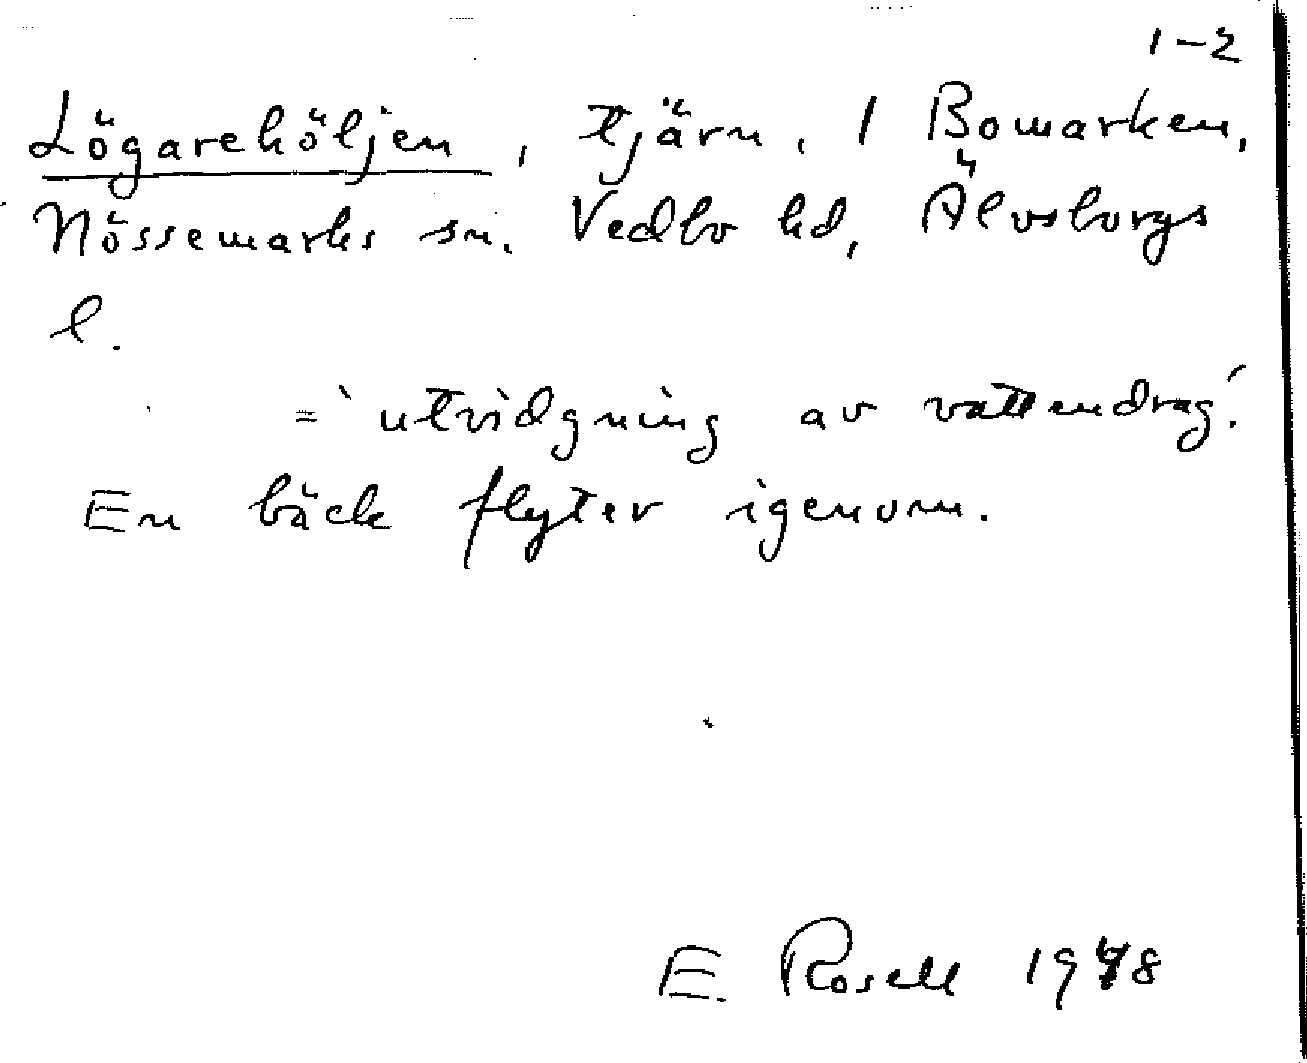 1-2
Lögarehöljen, tjärn, 1 Bomarken,
Nössemarks sn. Vedbo hd, Älvsborgs
l.
= 'utvidgning av vattendrag'.
En bäck flyter igenom.
E. Rosell